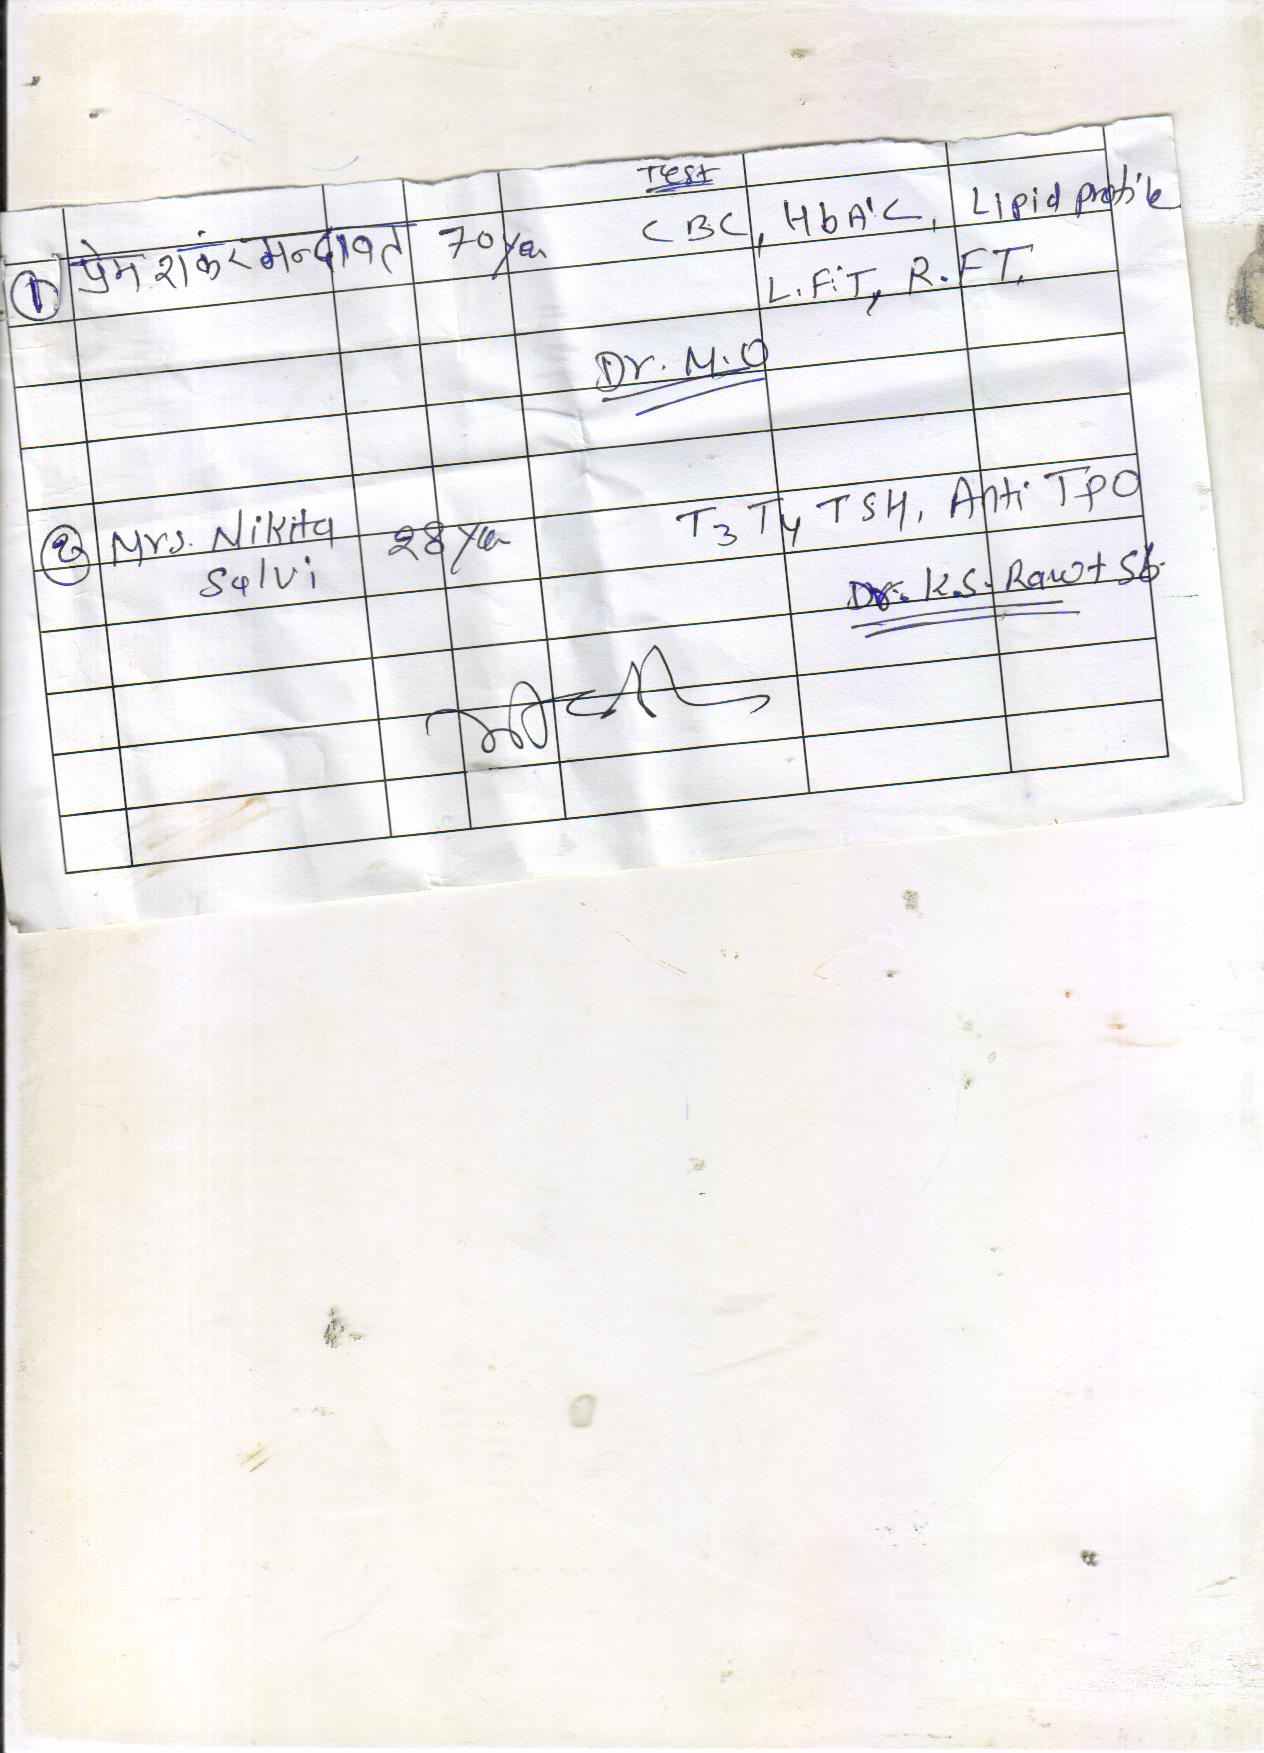 Test
① प्रेम शंकर मन्दावत 70 Yea CBC, HbA'C, Lipid profile
L.F.T, R.F.T.
Dr. M.O
② Mrs. Nikita 28 Yea T3 T4 TSH, Anti TPO
Salvi
Dr. K.S. Rawt Sb.